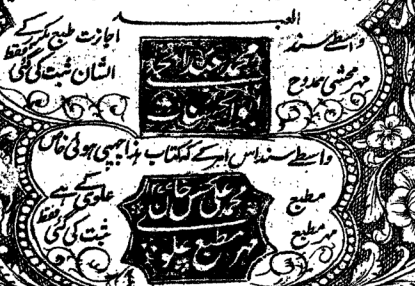 العبد
واسطے سند اجازت طبع
مہر محشی ممدوح الشان ثبت کی گئی فقط
محمد عبد
ابو الحسنات
واسطے سند اس امر کے کہ کتاب ہذا چھپی ہوئی خاص
مطبع علوی کے ہے
مہر مطبع ثبت کی گئی فقط
محمد علی بخش خان
مہر مطبع علوی